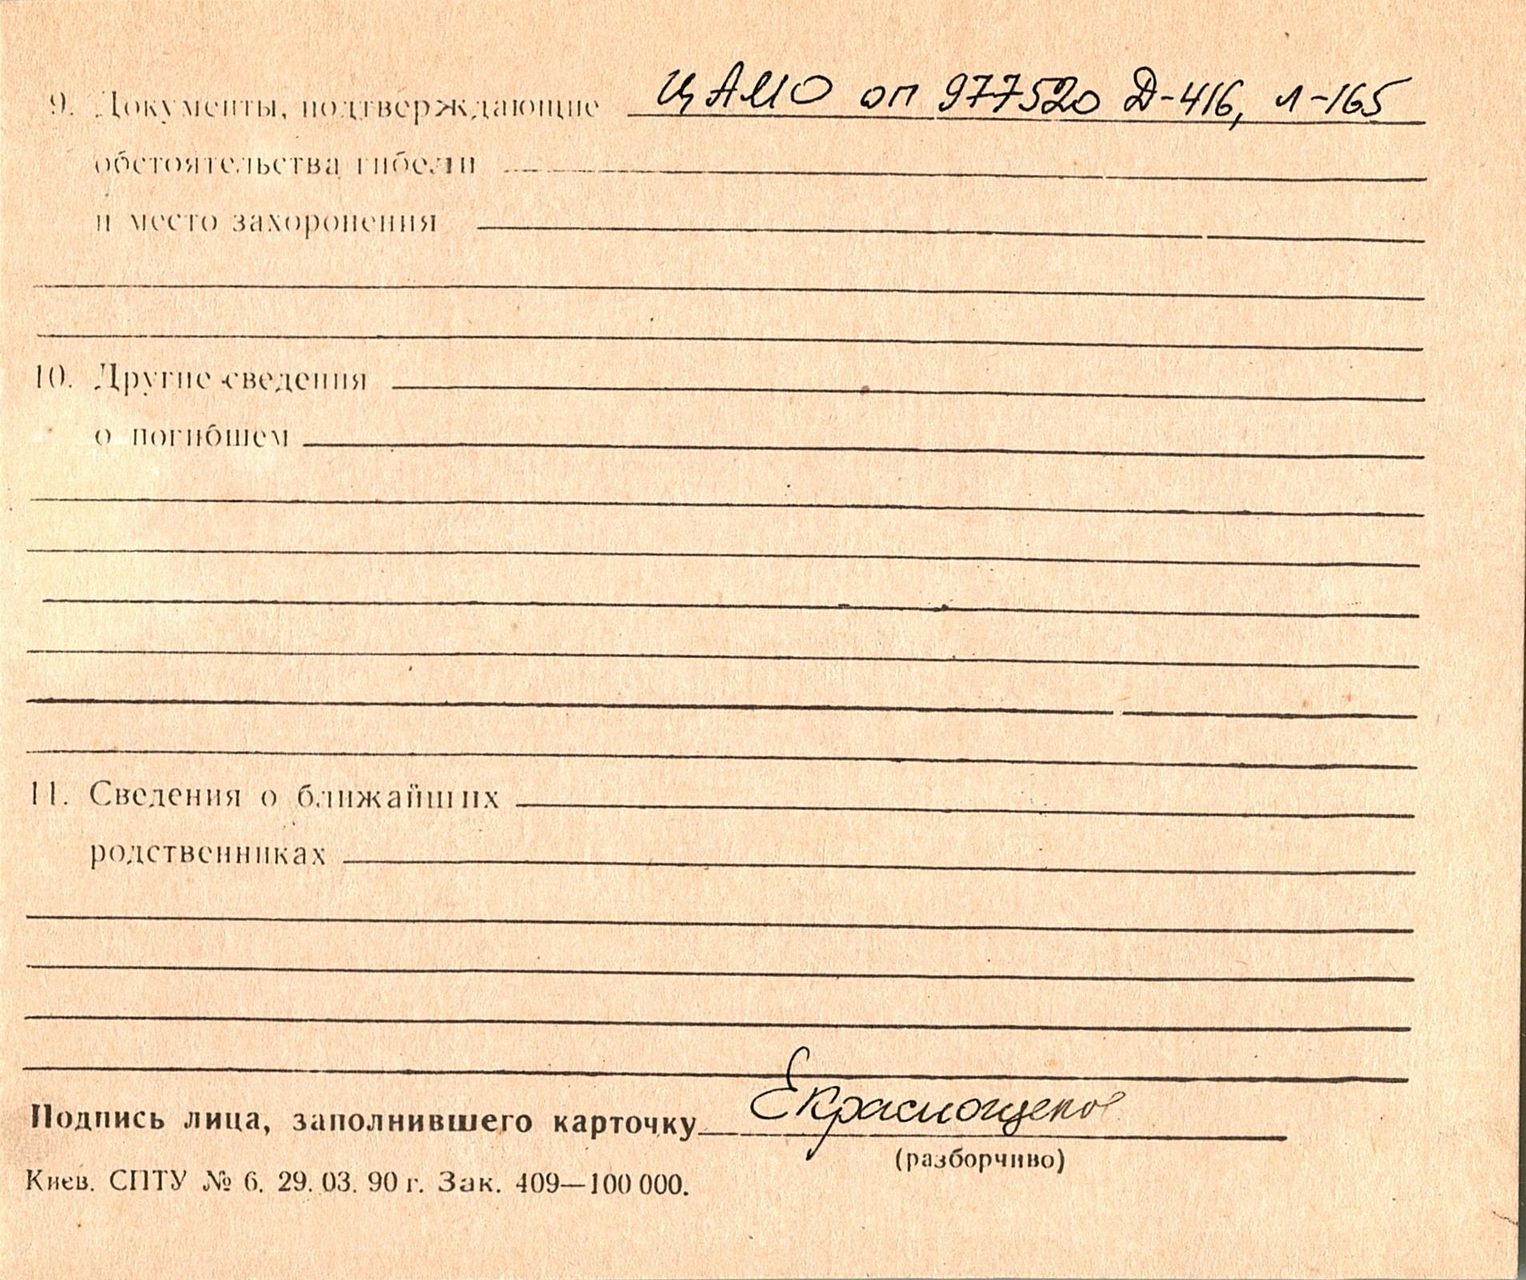 9. Документы, подтверждающие ЦАМО оп 977520 Д-416, л-165
обстоятельства гибели
и место захоронения
10. Другие сведения
о погибшем
11. Сведения о ближайших
родственниках
Подпись лица, заполнившего карточку
(разборчиво)
Киев. СПТУ № 6. 29. 03. 90 г. Зак. 409—100 000.